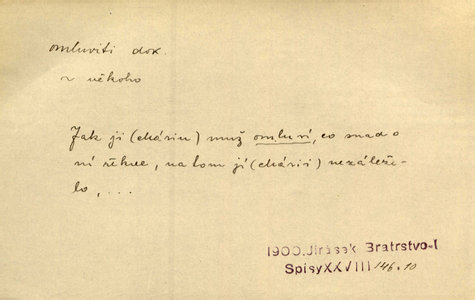 omluviti dok.
v někoho
Jak ji (cháriu) muž omluví, co snad o
ní řekne, na tom jí (chárii) nezáleže-
lo, ...
1900. Jirásek Bratrstvo-I
Spisy XXVIII 146.10